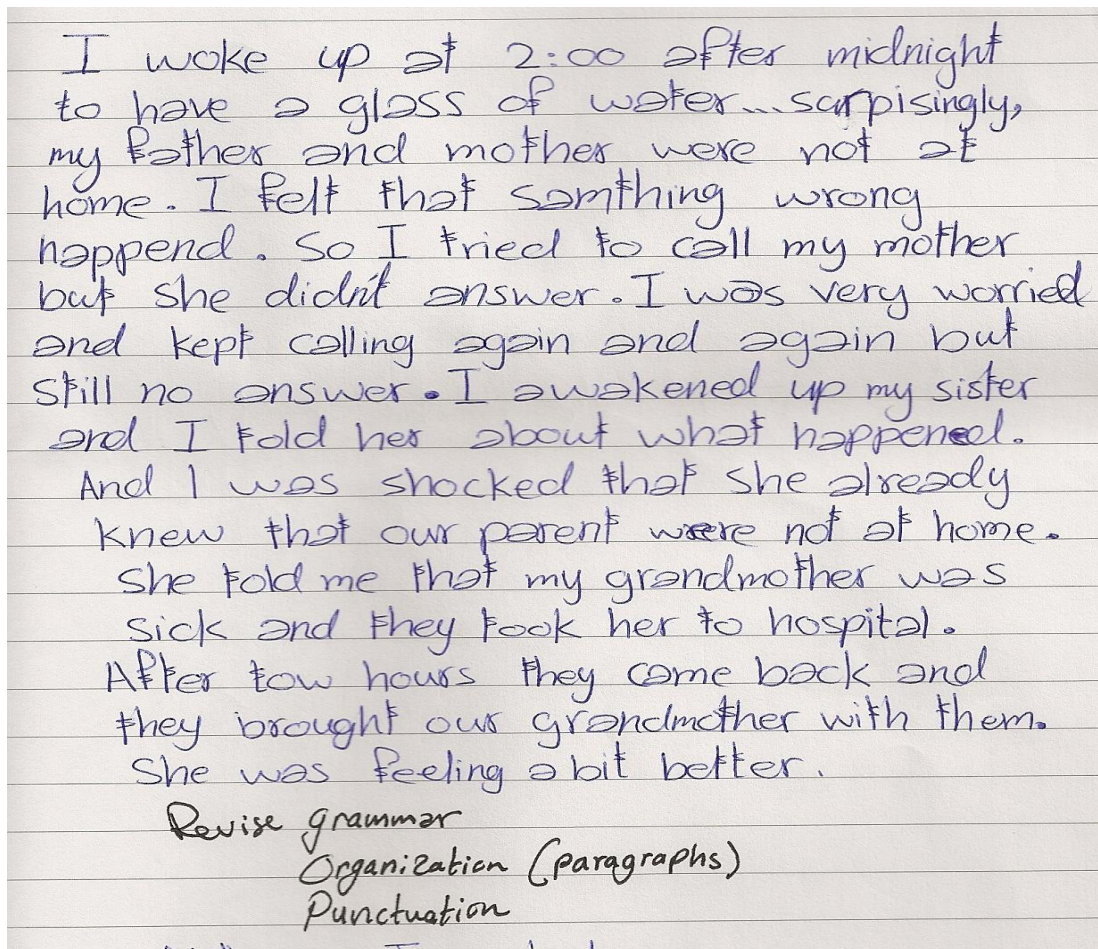 I woke up at 2:00 after midnight
to have a glass of water... sarpisingly,
my father and mother were not at
home. I felt that somthing wrong
happend. So I tried to call my mother
but she didn't answer. I was very worried
and kept calling again and again but
still no answer. I awakened up my sister
and I told her about what happened.
And I was shocked that she already
knew that our parent were not at home.
She told me that my grandmother was
sick and they took her to hospital.
After tow hours they came back and
they brought our grandmother with them.
She was feeling a bit better.
Revise grammar
Organization (paragraphs)
Punctuation